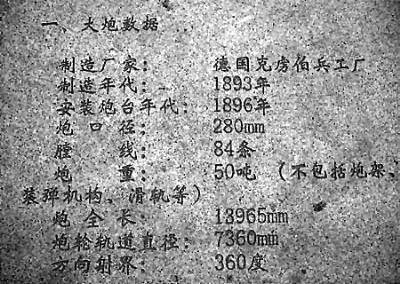 一、火炮数据
制造厂家： 德国克虏伯兵工厂
制造年代： 1893年
安装炮台年代： 1896年
炮口径： 280mm
膛线： 84条
炮重： 50吨（不包括炮架、
装弹机构、滑轨等）
炮全长： 13965mm
炮轮轨道直径： 7360mm
方向射界： 360度